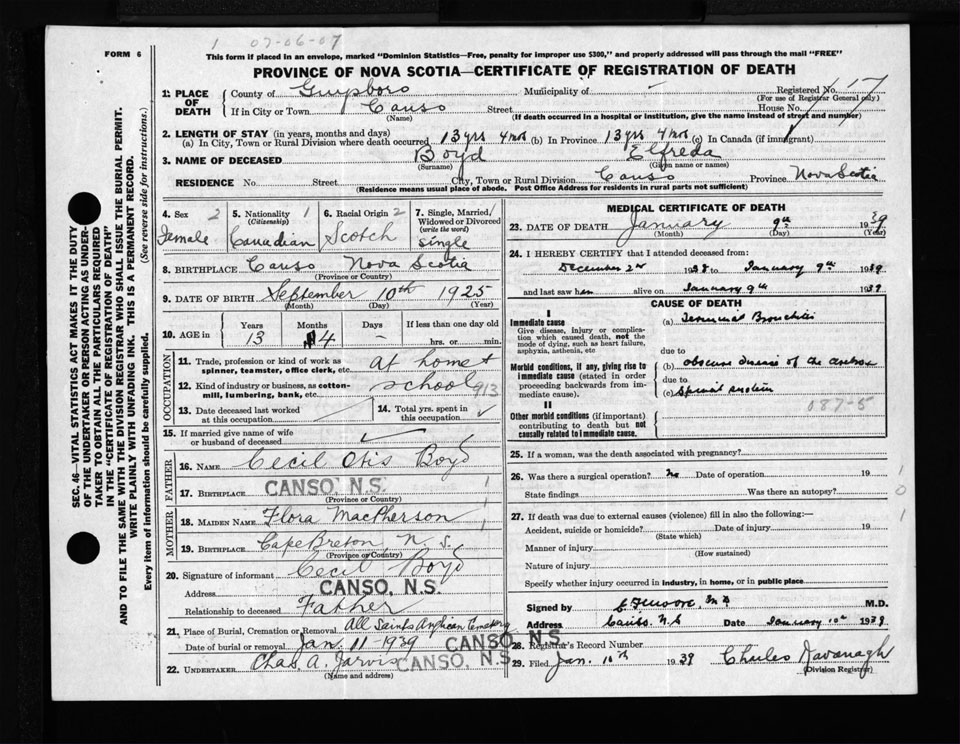 1 07-06-07
FORM 6
This form if placed in an envelope, marked "Dominion Statistics—Free, penalty for improper use $300," and properly addressed will pass through the mail "FREE"
PROVINCE OF NOVA SCOTIA—CERTIFICATE OF REGISTRATION OF DEATH
SEC. 46—VITAL STATISTICS ACT MAKES IT THE DUTY
OF THE UNDERTAKER OR PERSON ACTING AS UNDER-
TAKER TO OBTAIN ALL THE PARTICULARS REQUIRED
IN THE "CERTIFICATE OF REGISTRATION OF DEATH"
AND TO FILE THE SAME WITH THE DIVISION REGISTRAR WHO SHALL ISSUE THE BURIAL PERMIT.
WRITE PLAINLY WITH UNFADING INK. THIS IS A PERMANENT RECORD.
Every item of information should be carefully supplied. (See reverse side for instructions.)
1. PLACE OF DEATH County of Guysboro Municipality of Registered No. 17
(For use of Registrar General only)
If in City or Town Canso Street House No.
(Name) (If death occurred in a hospital or institution, give the name instead of street and number)
2. LENGTH OF STAY (in years, months and days)
(a) In City, Town or Rural Division where death occurred 13 yrs 4 mos (b) In Province 13 yrs 4 mos (c) In Canada (if immigrant)
3. NAME OF DECEASED Boyd Elfreda
(Surname) (Given name or names)
RESIDENCE No. Street City, Town or Rural Division Canso Province Nova Scotia
(Residence means usual place of abode. Post Office Address for residents in rural parts not sufficient)
4. Sex 2 Female
5. Nationality 1 (Citizenship) Canadian
6. Racial Origin 2 Scotch
7. Single, Married, 1 Widowed or Divorced (write the word) Single
8. BIRTHPLACE Canso Nova Scotia
(Province or Country)
9. DATE OF BIRTH September 10th 1925
(Month) (Day) (Year)
10. AGE in Years Months Days If less than one day old
13 4 – hrs. or min.
OCCUPATION
11. Trade, profession or kind of work as spinner, teamster, office clerk, etc. at home +
12. Kind of industry or business, as cotton-mill, lumbering, bank, etc. school 913
13. Date deceased last worked at this occupation
14. Total yrs. spent in this occupation
15. If married give name of wife or husband of deceased
FATHER
16. NAME Cecil Otis Boyd
17. BIRTHPLACE CANSO, N.S. 1
(Province or Country)
MOTHER
18. MAIDEN NAME Flora MacPherson
19. BIRTHPLACE Cape Breton, N.S. 1
(Province or Country)
20. Signature of informant Cecil Boyd
Address CANSO, N.S.
Relationship to deceased Father
21. Place of Burial, Cremation or Removal All Saints Anglican Cemetery
Date of burial or removal Jan. 11 - 1939 CANSO, N.S.
22. UNDERTAKER Chas A. Jarvis CANSO, N.S.
(Name and address)
MEDICAL CERTIFICATE OF DEATH
23. DATE OF DEATH January 9th 1939
(Month) (Day) (Year)
24. I HEREBY CERTIFY that I attended deceased from:
December 2nd 1938 to January 9th 1939
and last saw her alive on January 9th 1939
CAUSE OF DEATH
I
Immediate cause (a) Terminal Bronchitis
Give disease, injury or complication which caused death, not the mode of dying, such as heart failure, asphyxia, asthenia, etc
due to
Morbid conditions, if any, giving rise to immediate cause (stated in order proceeding backwards from immediate cause). (b) obscure disease of the
due to
(c) spinal system
II 087-5
Other morbid conditions (if important) contributing to death but not causally related to immediate cause.
25. If a woman, was the death associated with pregnancy?
26. Was there a surgical operation? no Date of operation 19 1
State findings Was there an autopsy? 0
27. If death was due to external causes (violence) fill in also the following:— 1
Accident, suicide or homicide? Date of injury 19
(State which)
Manner of injury
(How sustained)
Nature of injury
Specify whether injury occurred in industry, in home, or in public place
Signed by M.D.
Address Canso. N.S Date January 10th 1939
28. Registrar's Record Number
29. Filed Jan. 10th 1939 Charles Kavanagh
(Division Registrar)